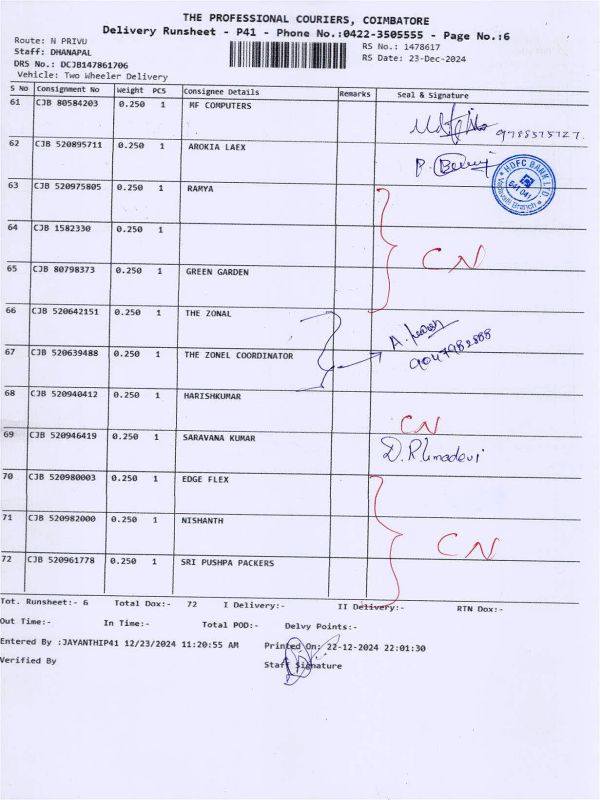 THE PROFESSIONAL COURIERS, COIMBATORE
Delivery Runsheet - P41 - Phone No.:0422-3505555 - Page No.:6
Route: N PRIVU RS No.: 1478617
Staff: DHANAPAL RS Date: 23-Dec-2024
DRS No.: DCJB147861706
Vehicle: Two Wheeler Delivery
S No Consignment No Weight PCS Consignee Details Remarks Seal & Signature
61 CJB 80584203 0.250 1 MF COMPUTERS
62 CJB 520895711 0.250 1 AROKIA LAEX
HDFC BANK LTD
Branch
63 CJB 520975805 0.250 1 RAMYA
64 CJB 1582330 0.250 1 CN
65 CJB 80798373 0.250 1 GREEN GARDEN
66 CJB 520642151 0.250 1 THE ZONAL
67 CJB 520639488 0.250 1 THE ZONEL COORDINATOR
68 CJB 520940412 0.250 1 HARISHKUMAR CN
69 CJB 520946419 0.250 1 SARAVANA KUMAR D. R Umadevi
70 CJB 520980003 0.250 1 EDGE FLEX
71 CJB 520982000 0.250 1 NISHANTH CN
72 CJB 520961778 0.250 1 SRI PUSHPA PACKERS
Tot. Runsheet:- 6 Total Dox:- 72 I Delivery:- II Delivery:- RTN Dox:-
Out Time:- In Time:- Total POD:- Delvy Points:-
Entered By :JAYANTHIP41 12/23/2024 11:20:55 AM Printed On: 22-12-2024 22:01:30
Verified By Staff Signature